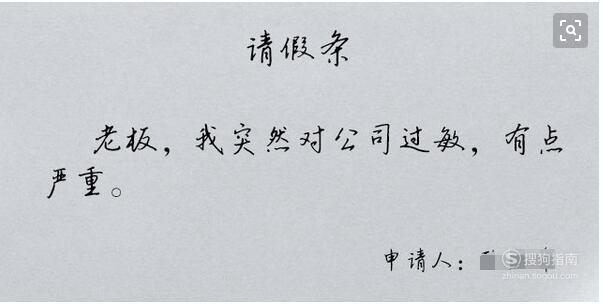 请假条
老板，我突然对公司过敏，有点
严重。
申请人：
搜狗指南
zhinan.sogou.com